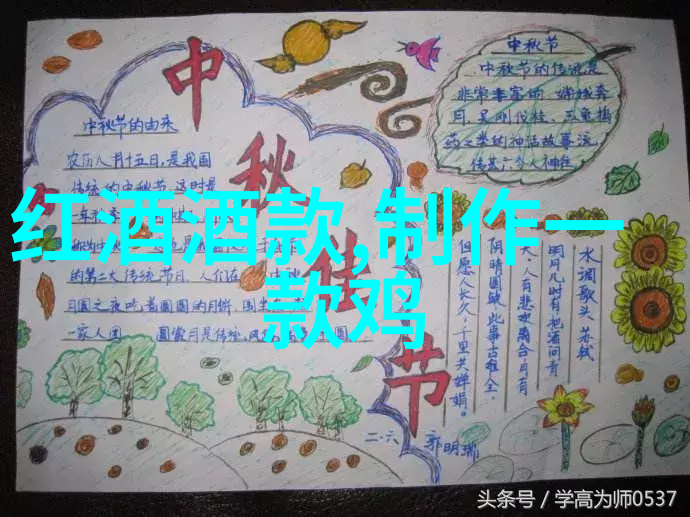 中秋佳节
中秋节的由来
农历八月十五日,是我国
传统的中秋节,这时是
一年
的第二大传统节日,人们在
月圆之夜吃着圆圆的月饼,
一家人团
中秋节
中秋节的传说是
非常丰富的,嫦娥奔
月,吴刚伐桂,玉兔捣
药之类的神话故事流
水调歌头 苏轼
明月几时有把酒问青
人有悲欢离合月有
阴晴圆缺,此事古难全。
但愿人长久,千里共婵娟。
二.六 郭明瑞
红酒酒款,制作一
款鸡
头条号／学高为师0537